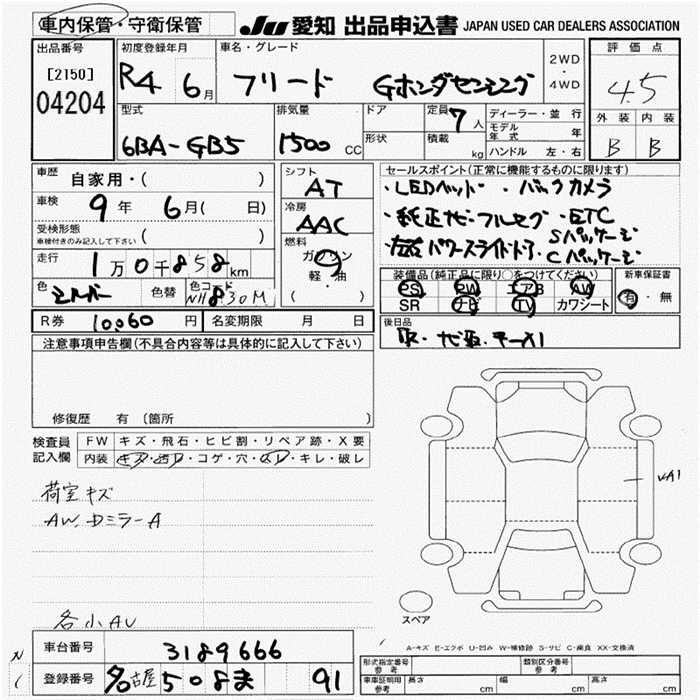 車内保管・守衛保管
JU 愛知 出品申込書 JAPAN USED CAR DEALERS ASSOCIATION
出品番号 初度登録年月 車名・グレード 2WD・4WD 評価点
[2150] R4 6月 フリード Gホンダセンシング 4.5
04204
型式 排気量 ドア 定員 7人 ディーラー・並行 外装 内装
6BA-GB5 1500 CC 形状 積載 kg モデル年式 年 B B
ハンドル 左・右
車歴 自家用・( ) シフト AT セールスポイント(正常に機能するものに限ります)
・LEDヘッド ・バックカメラ
車検 9年 6月( 日) 冷房 AAC ・純正ナビ・フルセグ・ETC
受検形態 ( ) ・左右パワースライドドア Sパッケージ
車検付きのみ記入して下さい 燃料 Cパッケージ
走行 1万0千858km ガソリン 装備品(純正品に限り○をつけてください) 新車保証書
軽・油 PS PW エアB AW 有・無
色 シルバー 色替 色コード NH830M ( ) SR ナビ TV カワシート
R券 10,060円 名変期限 月 日 後日品
注意事項申告欄(不具合内容等は具体的に記入して下さい)
修復歴 有 (箇所
検査員 FW キズ・飛石・ヒビ割・リペア跡・X要
記入欄 内装 キズ・汚レ・コゲ・穴・スレ・キレ・破レ
荷室キズ
AW,DミラーA
各小AU
スペア
A-キズ E-エクボ U-凹み W-補修跡 S-サビ C-腐食 XX-交換済
車台番号 3189666 形式指定番号 参考 類別区分番号 参考
登録番号 名古屋508ま 91 車庫証明用 参考 長さ cm 幅 cm 高さ cm